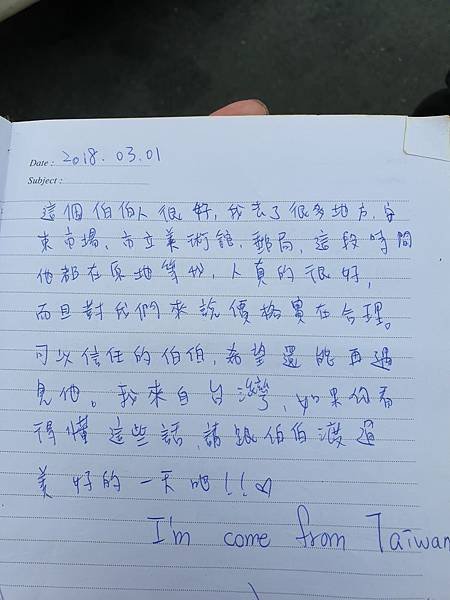 Date : 2018. 03. 01
Subject :
這個伯伯人很好, 我去了很多地方, 安
東市場, 市立美術館, 郵局, 這段時間
他都在原地等我, 人真的很好,
而且對我們來說價格實在合理。
可以信任的伯伯, 希望還能再遇
見他。我來自台灣, 如果你看
得懂這些話, 請跟伯伯渡過
美好的一天吧!!♡
I'm come from Taiwan